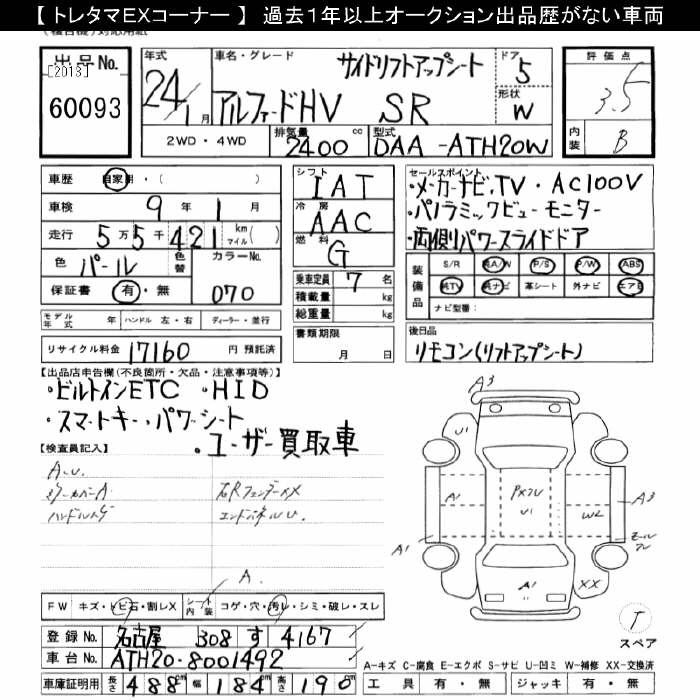 【トレタマEXコーナー】 過去1年以上オークション出品歴がない車両
出品No.
[2013]
60093
年式
24/1月
車名・グレード
サイドリフトアップシート
アルファードHV SR
ドア
5
形状
W
評価点
3.5
内装
B
2WD・4WD
排気量
2400 cc
型式
DAA-ATH20W
車歴
自家用・( )
車検
9年1月
走行
5万5千421 km マイル( )
色
パール
色替
カラーNo.
070
保証書
有・無
モデル年式
年
ハンドル 左・右
ディーラー・並行
リサイクル料金 17160 円 預託済
シフト
IAT
冷房
AAC
燃料
G
乗車定員 7 名
積載量 kg
総重量 kg
書類期限
月 日
セールスポイント
・メーカーナビ,TV・AC100V
・パノラミックビューモニター
・両側パワースライドドア
装備品
S/R
AA/W
P/S
P/W
ABS
純TV
純ナビ
革シート
外ナビ
エアB
ナビ型番:
後日品
リモコン(リフトアップシート)
【出品店申告欄(不良箇所・欠品・注意事項等)】
・ビルトインETC ・HID
・スマートキー・パワーシート
・ユーザー買取車
【検査員記入】
A.U.
ハンドルスレ
右Rフェンダーxx
エンドパネルU.
A.
FW
キズ・トビ石・割レX
シート内装
コゲ・穴・汚レ・シミ・破レ・スレ
登録No. 名古屋 308 す 4167
車台No. ATH20-8001492
車庫証明用
長さ 488cm
幅 184cm
高さ 190cm
A3
U1
A1
A1
U1
A1
W2
A3
XX
T
スペア
A-キズ C-腐食 E-エクボ S-サビ U-凹ミ W-補修 XX-交換済
工具 有・無
ジャッキ 有・無